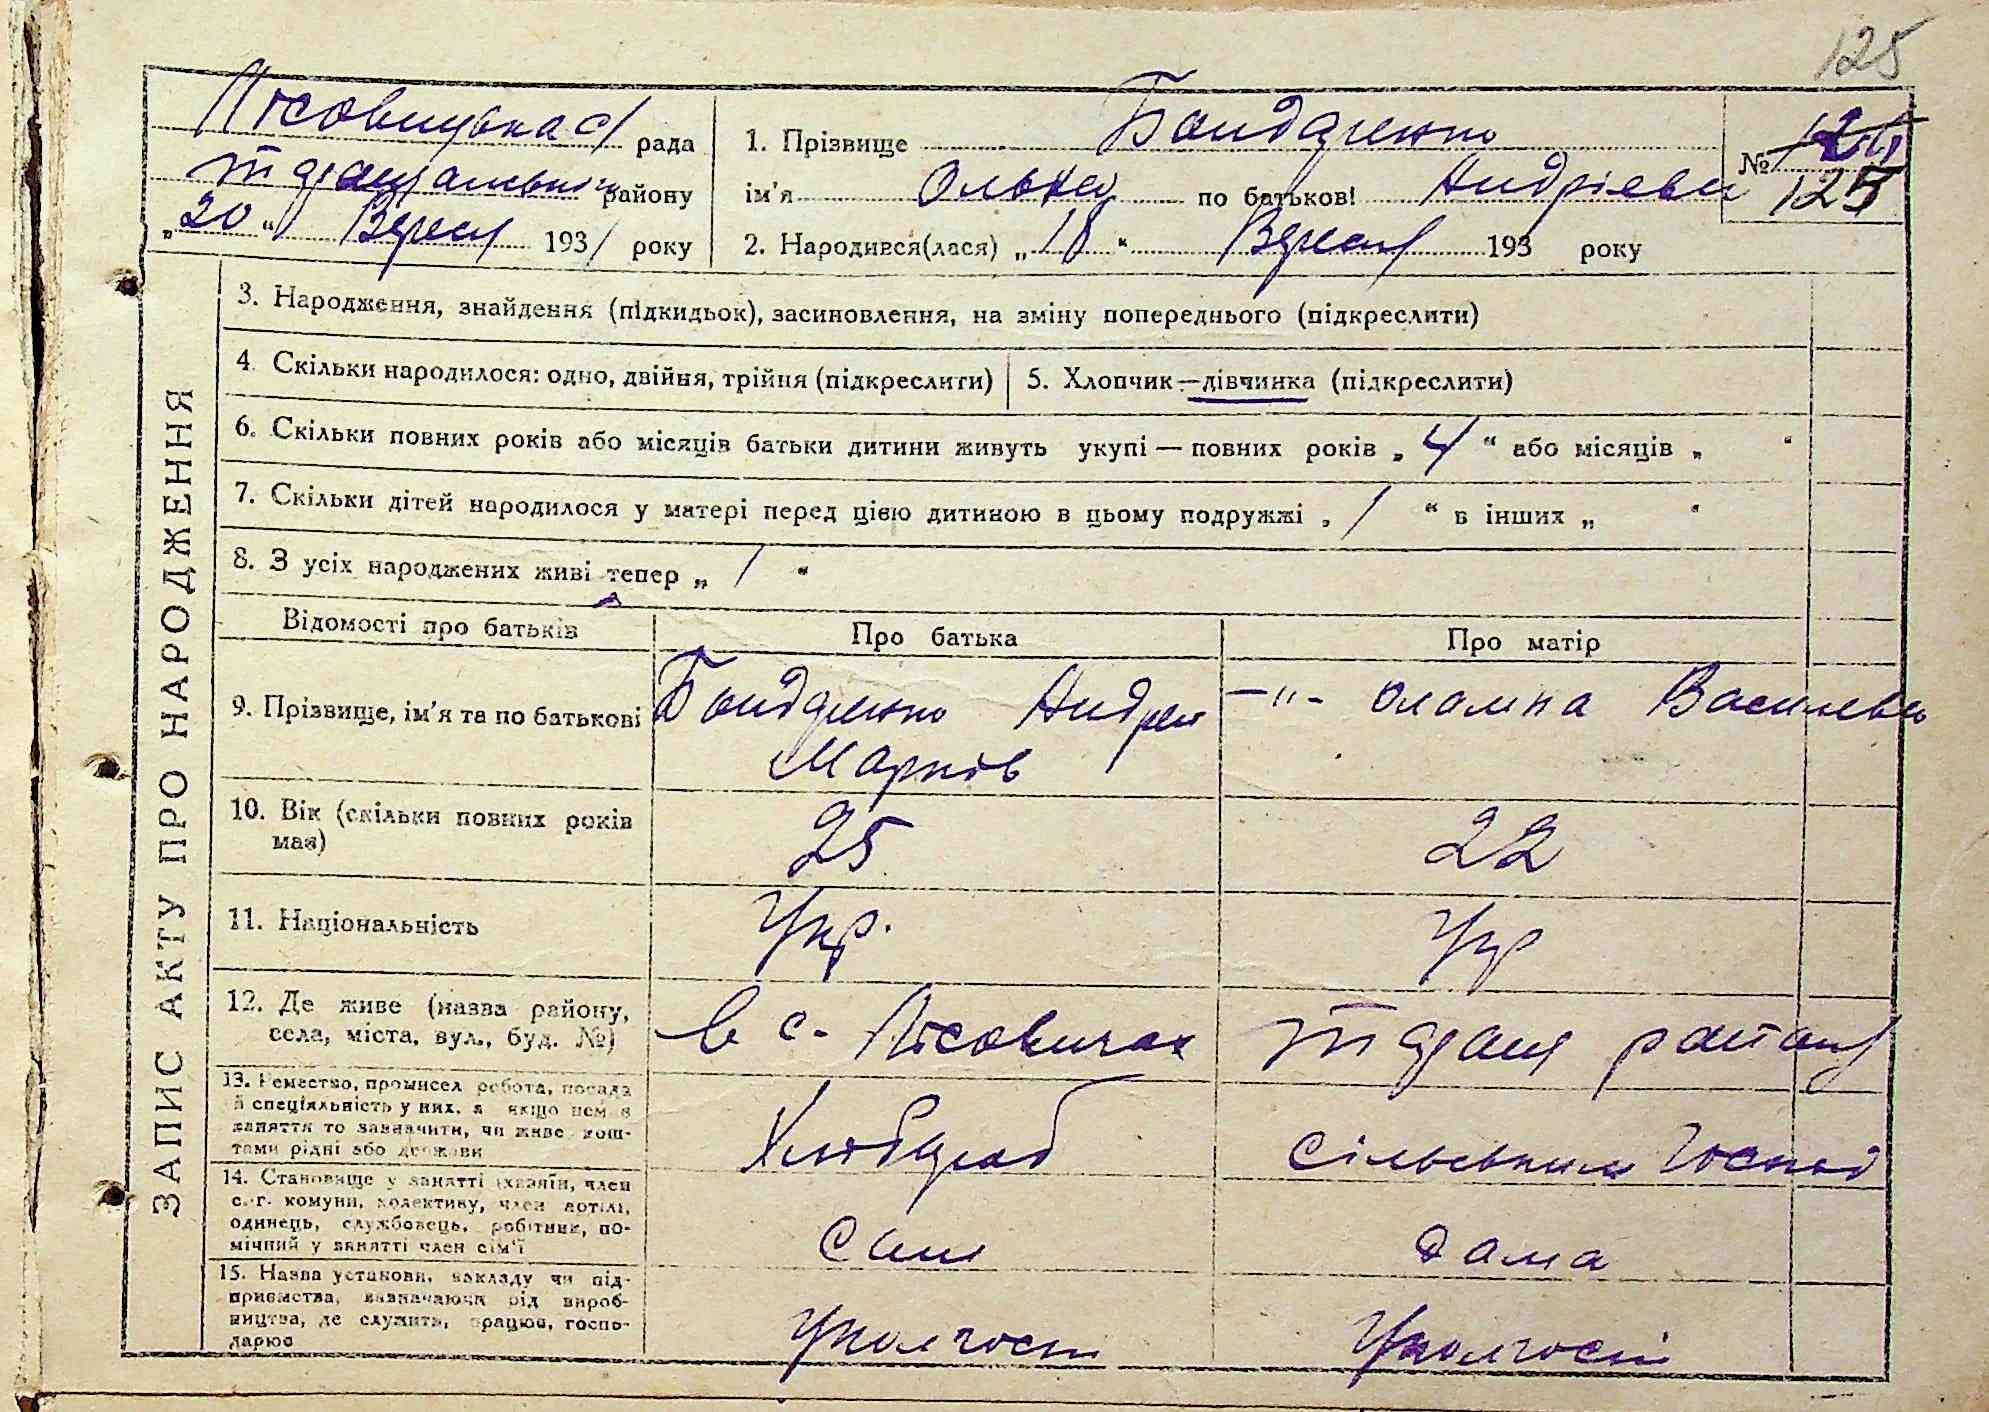 125
Лісовицька с/ рада
Таращанського району
„20“ Вересн 1931 року
1. Прізвище Бондаренко
ім'я Ольга по батькові Андріевн
2. Народився(лася) „18“ Вересня 193 року
№ 126
125
ЗАПИС АКТУ ПРО НАРОДЖЕННЯ
3. Народження, знайдення (підкидьок), засиновлення, на зміну попереднього (підкреслити)
4. Скільки народилося: одно, двійня, трійня (підкреслити)
5. Хлопчик—дівчинка (підкреслити)
6. Скільки повних років або місяців батьки дитини живуть укупі — повних років „4“ або місяців „ “
7. Скільки дітей народилося у матері перед цією дитиною в цьому подружжі „1“ в інших „ “
8. З усіх народжених живі тепер „1“
Відомості про батьків
Про батька
Про матір
9. Прізвище, ім'я та по батькові
Бондаренко Андрей
Марків
—"— Олампа Василевн
10. Вік (скільки повних років
має)
25
22
11. Національність
Укр.
Укр
12. Де живе (назва району,
села, міста, вул., буд. №)
в с. Лісовичах
Таращ району
13. Ремество, промисел робота, посада
й спеціяльність у них, а якщо нема
заняття то зазначити, чи живе кош-
тами рідні або держави
Хлібороб
сільським господ
14. Становище у занятті (хазяїн, член
с.-г. комуни, колективу, член артілі,
одинець, службовець, робітник, по-
мічний у занятті член сім'ї
сам
дома
15. Назва установи, закладу чи під-
приємства, зазначаючи рід вироб-
ництва, де служить, працює, госпо-
дарює